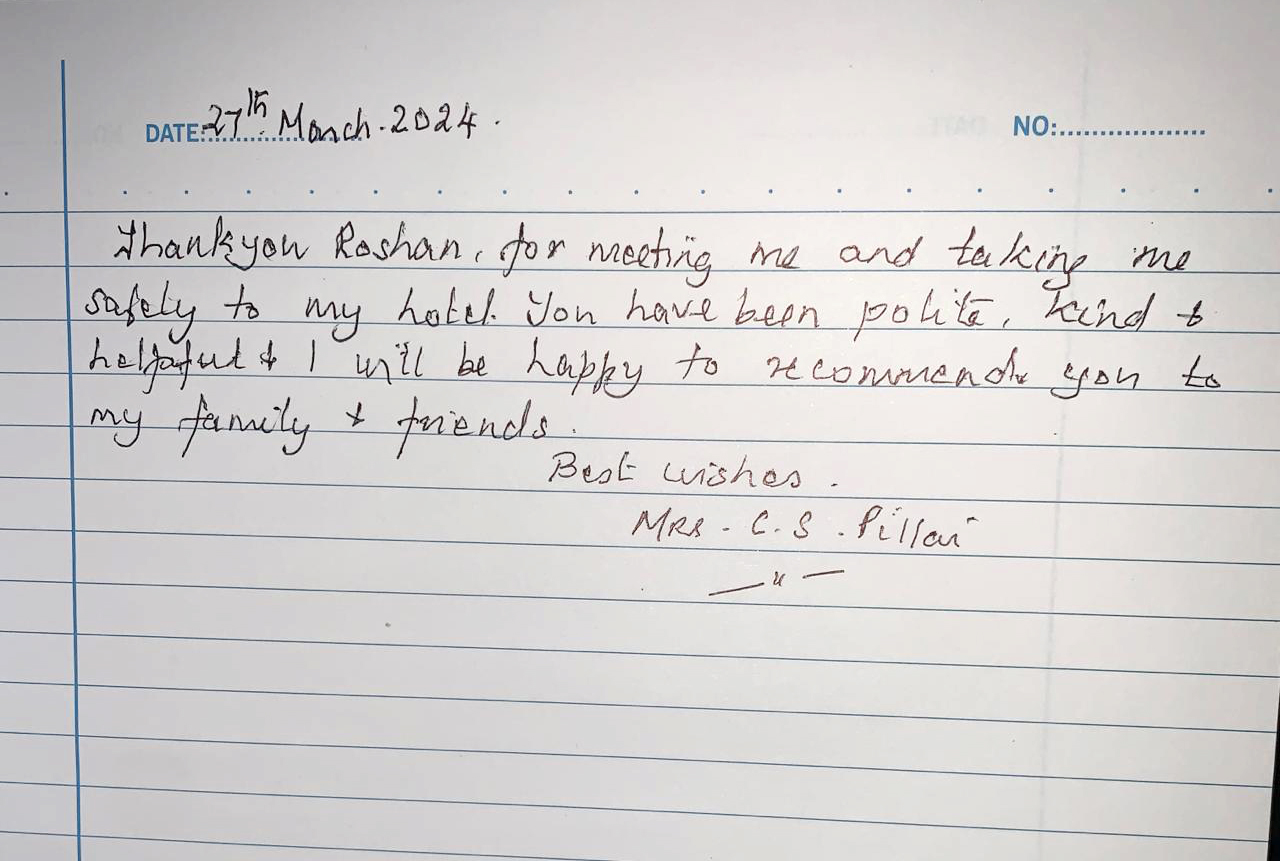 DATE: 27th March. 2024.
NO:
Thankyou Roshan, for meeting me and taking me
safely to my hotel. You have been polite, kind &
helpful & I will be happy to recommend you to
my family & friends.
Best wishes.
Mrs. C. S. Pillai